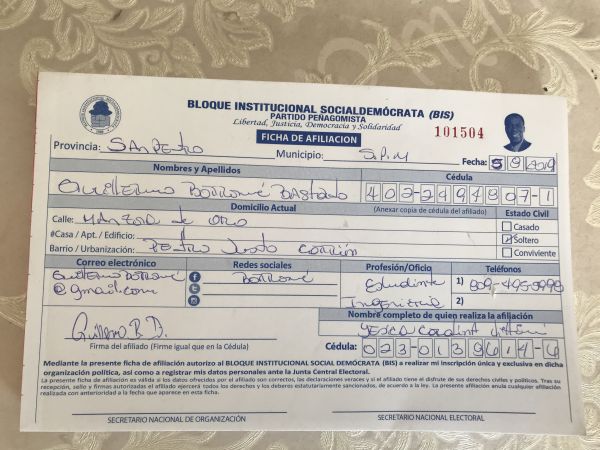 BLOQUE INSTITUCIONAL SOCIALDEMÓCRATA (BIS)
PARTIDO PEÑAGOMISTA
Libertad, Justicia, Democracia y Solidaridad
101504
FICHA DE AFILIACION
Provincia: San Pedro Municipio: S.P.M Fecha: 5 9 2019
Nombres y Apellidos Cédula
Guillermo Borromé 402-2494807-1
Domicilio Actual (Anexar copia de cédula del afiliado) Estado Civil
Calle: Manzana de Oro Casado
#Casa / Apt. / Edificio: Soltero
Barrio / Urbanización: Pedro Justo Carrión Conviviente
Correo electrónico Redes sociales Profesión/Oficio Teléfonos
Guillermo Borromé Borromé Estudiante 1) 809-495-9999
@gmail.com Ingeniería 2)
Nombre completo de quien realiza la afiliación
Guillermo B. B.
Firma del afiliado (Firme igual que en la Cédula) Cédula: 023-0139614-6
Mediante la presente ficha de afiliación autorizo al BLOQUE INSTITUCIONAL SOCIAL DEMÓCRATA (BIS) a realizar mi inscripción única y exclusiva en dicha
organización política, así como a registrar mis datos personales ante la Junta Central Electoral.
La presente ficha de afiliación es válida si los datos ofrecidos por el afiliado son correctos, las declaraciones veraces y si el afiliado tiene el disfrute de sus derechos civiles y políticos. Tras su
recepción, sello y firmas autorizadas el afiliado ejercerá todos los derechos y los deberes estatutariamente sancionados, de acuerdo a la ley. La presente afiliación anula cualquier afiliación
realizada con anterioridad a la fecha que aparece en esta ficha.
SECRETARIO NACIONAL DE ORGANIZACIÓN SECRETARIO NACIONAL ELECTORAL